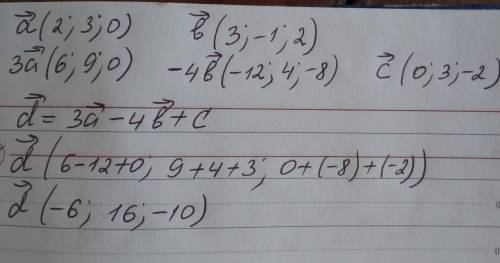 a⃗(2; 3; 0) b⃗(3; -1; 2)
3a⃗(6; 9; 0) -4b⃗(-12; 4; -8) c⃗(0; 3; -2)
d⃗ = 3a⃗ - 4b⃗ + c
d⃗(6-12+0; 9+4+3; 0+(-8)+(-2))
d⃗(-6; 16; -10)